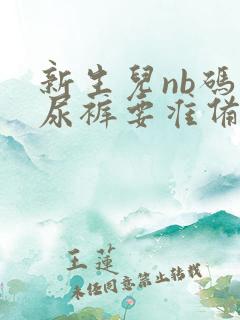 新生兒nb碼
尿褲要准备
王蓮
未经同意禁止转载